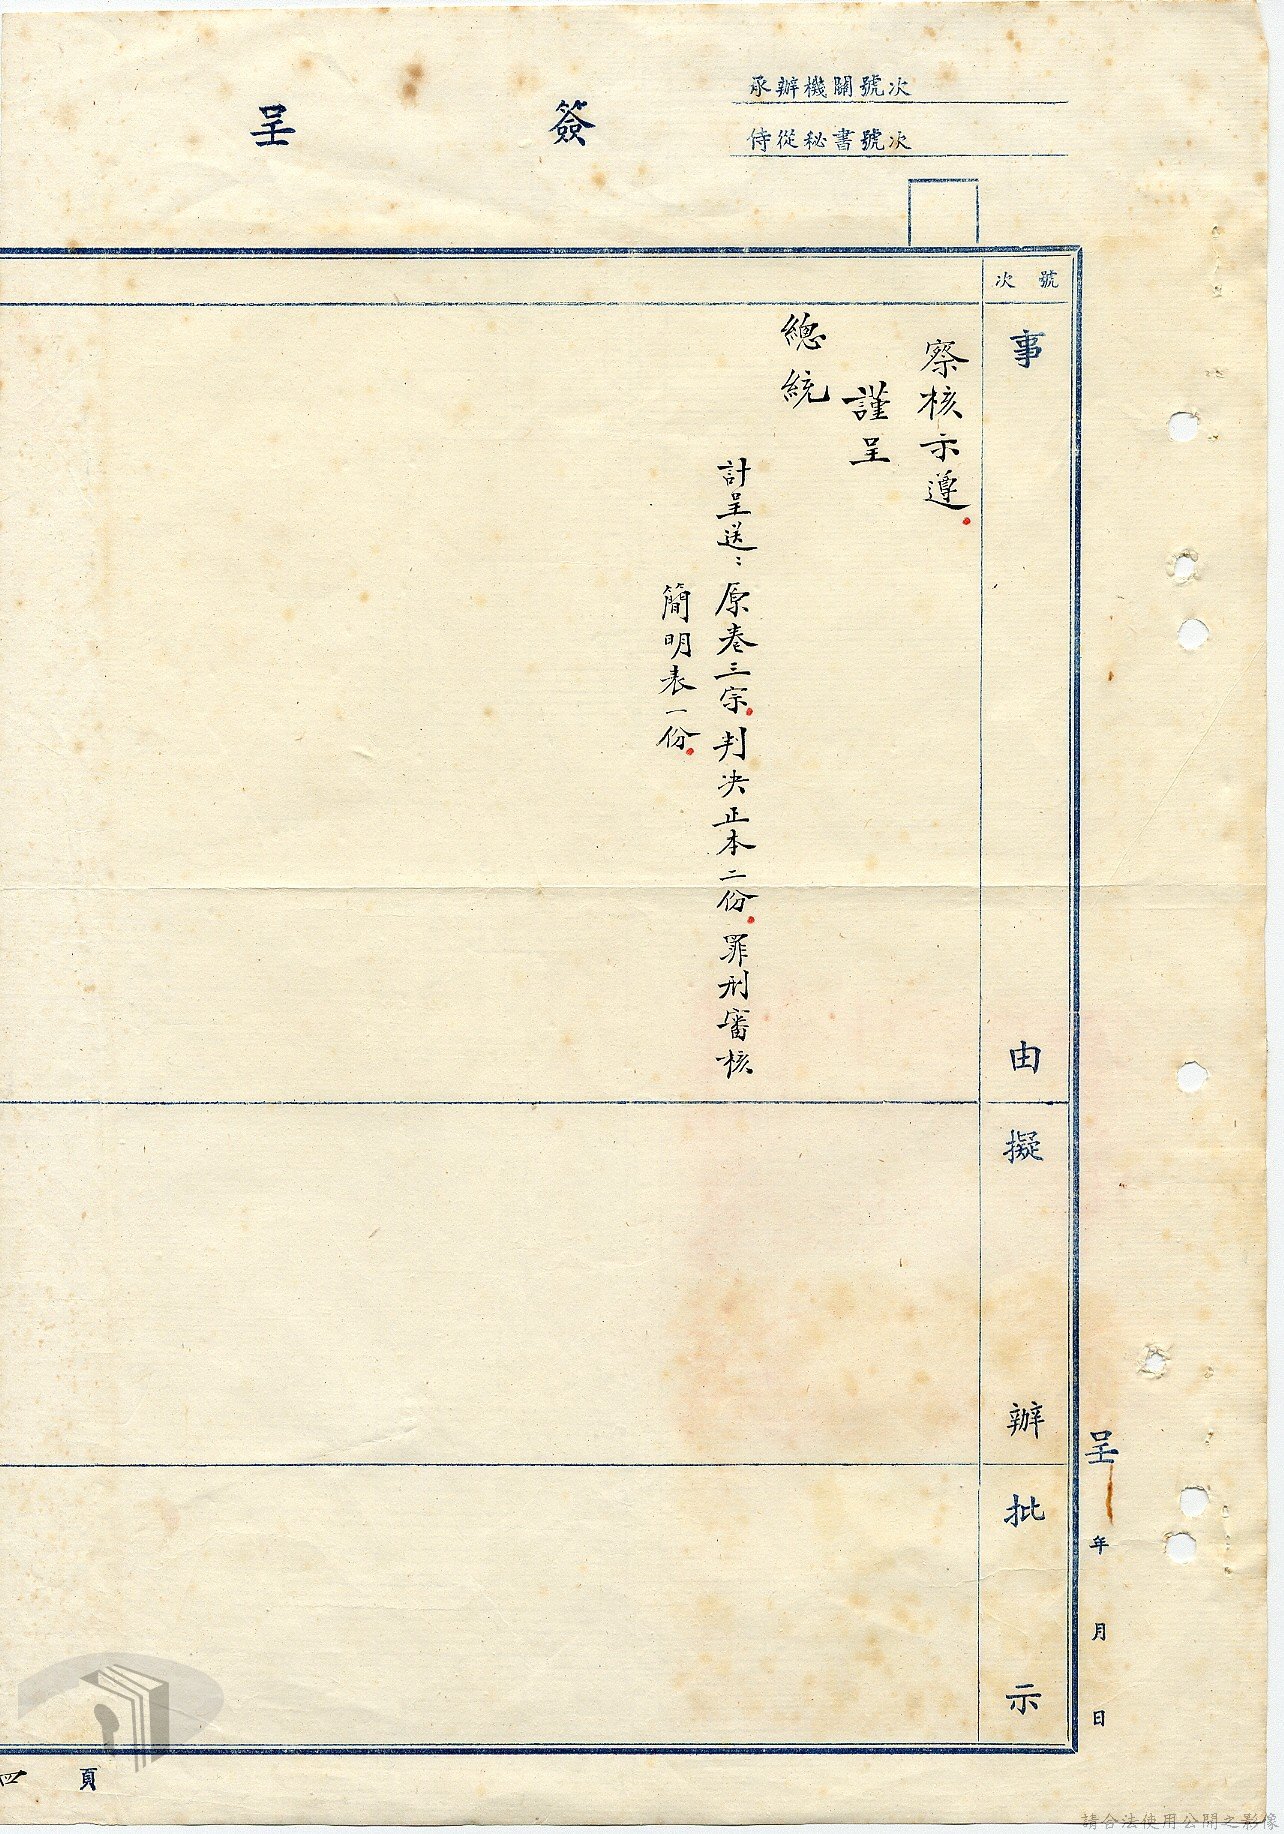 承辦機關號次
侍從秘書號次
簽呈
號次
事由
擬辦
批示
察核示遵。
謹呈
總統
計呈送：原卷三宗。判決正本二份。罪刑審核
簡明表一份。
呈 年 月 日
四頁
請合法使用公開之影像